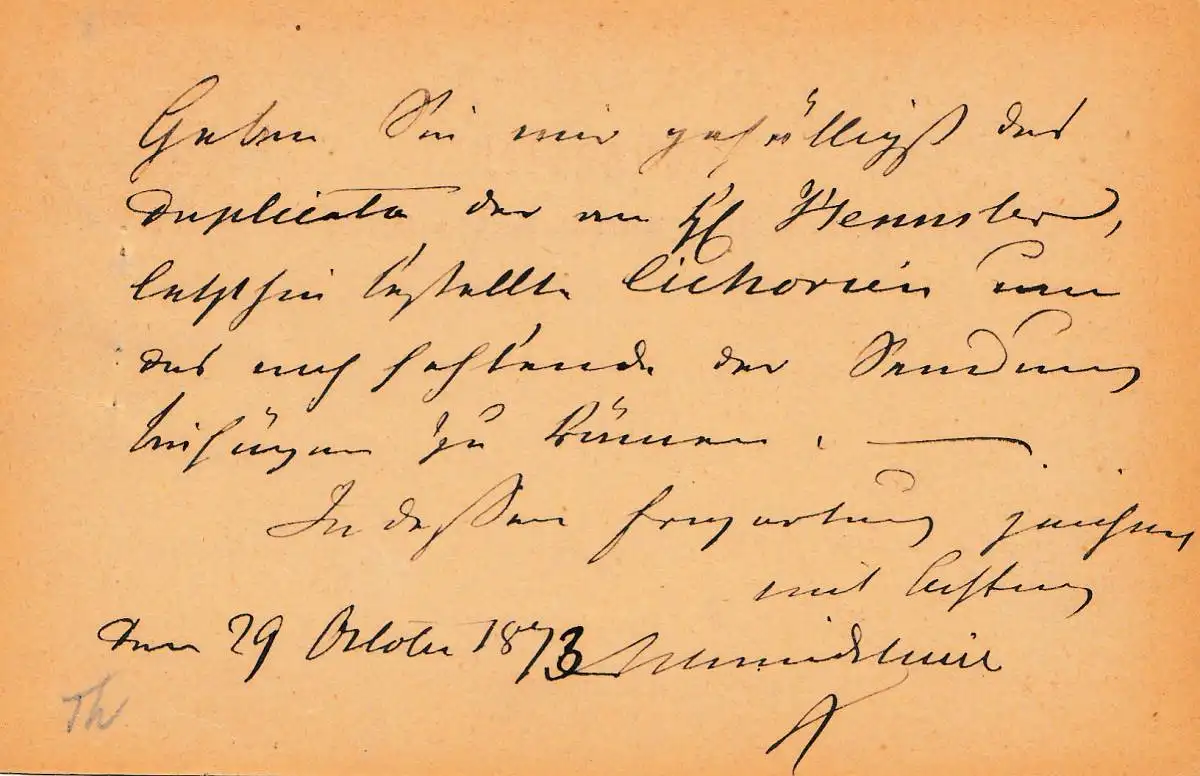 Geben Sie mir gefälligst das
Duplicata der an H Hennsler,
letzthin bestellte Cichorien um
das noch fehlende der Sendung
beifügen zu können. —
In dessen Erwartung zeichnet
mit Achtung
den 29 October 1873
Th